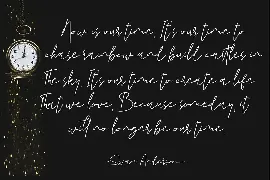 Now is our time. It's our time to
chase rainbow and build castles in
the sky. It's our time to create a life
that we love. Because someday, it
will no longer be our time